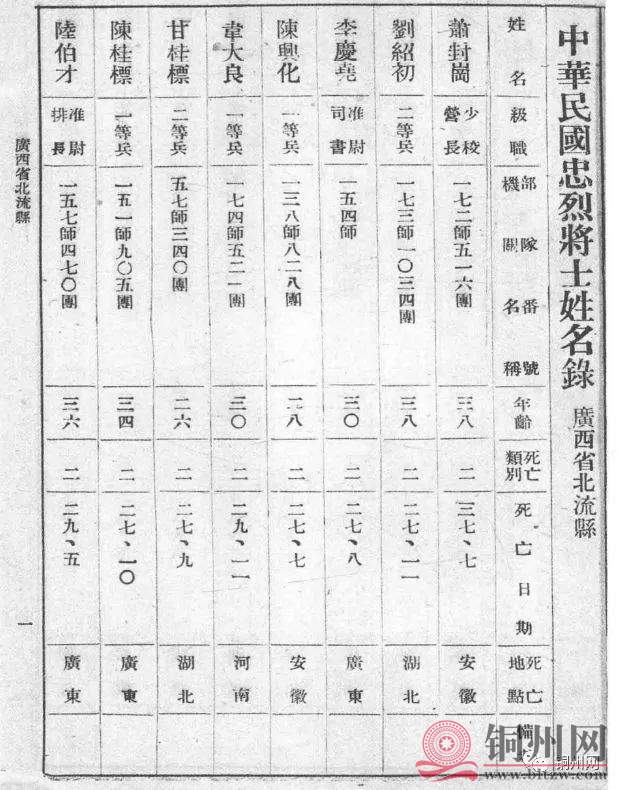 中華民國忠烈將士姓名錄 廣西省北流縣
姓名 級職 部隊番號機關名稱 年齡 死亡類別 死亡日期 死亡地點 備
蕭封崗 少校營長 一七二師五一六團 三八 二 三七、七 安徽
劉紹初 二等兵 一七三師一〇三四團 三八 二 二七、一一 湖北
李慶堯 准尉司書 一五四師 三〇 二 二七、八 廣東
陳興化 一等兵 一三八師八二八團 二八 二 二七、七 安徽
韋大良 一等兵 一七四師五二一團 三〇 二 二九、一一 河南
甘桂標 二等兵 五七師三四〇團 二六 二 二七、九 湖北
陳桂標 一等兵 一五一師九〇五團 三四 二 二七、一〇 廣東
陸伯才 准尉排長 一五七師四七〇團 三六 二 二九、五 廣東
廣西省北流縣 一
铜州网
铜州网
www.bltzw.com